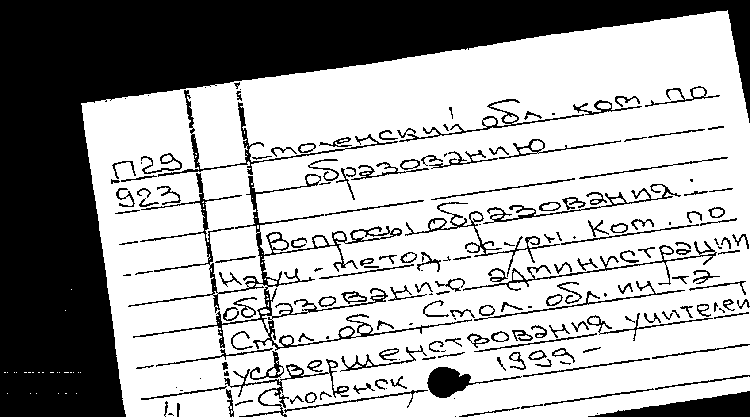 П29
923
Смоленский обл. ком. по
образованию.
Вопросы образования:
Науч.-метод. журн. Ком. по
образованию администрации
Смол. обл., Смол. обл. ин-та
усовершенствования учителей
- Смоленск, 1999-